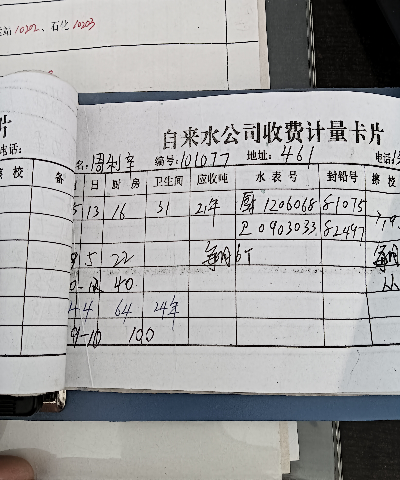 站10202、石仕10203
片
电话:
换 校 备
自来水公司收费计量卡片
名: 周利辛 编号: 101077 地址: 461 电话:
日 厨 房 卫生间 应收吨 水 表 号 封铅号 换 校
5 13 16 31 21年 厨 1206068 81075
卫 0903033 82497
9 5 22 每月6T 每月
0-12 40
4-4 64 24年
9-10 100